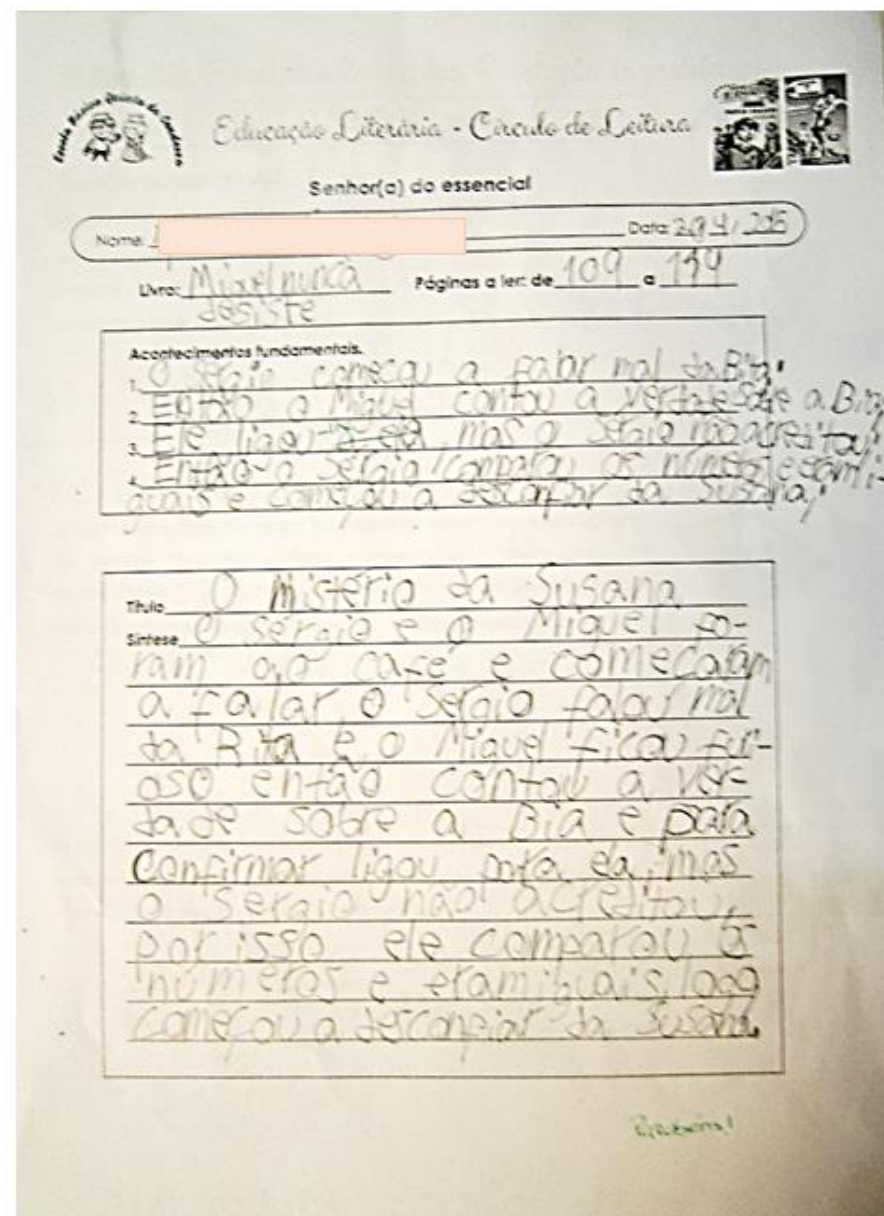 Escola Básica Quinta da
Educação Literária - Círculo de Leitura
Senhor(a) do essencial
Nome:
Data: 29/4/
Livro: Miguel nunca
desiste
Páginas a ler: de 109 a 119
Acontecimentos fundamentais.
1. O Sérgio começou a falar mal da Bita;
2. Então o Miguel contou a verdade sobre a Bia;
3. Ele ligou, mas o Sérgio não acreditou;
4. Então o Sérgio comparou os números e eram i-
guais e começou a desconfiar da Susana;
Título O Mistério da Susana
Síntese O Sérgio e o Miguel fo-
ram ao café e começaram
a falar, o Sérgio falou mal
da Rita e o Miguel ficou fu-
oso então contou a ver-
dade sobre a Bia e para
confirmar ligou para ela, mas
o Sérgio não acreditou,
por isso ele comparou os
números e eram iguais, logo
começou a desconfiar da Susana